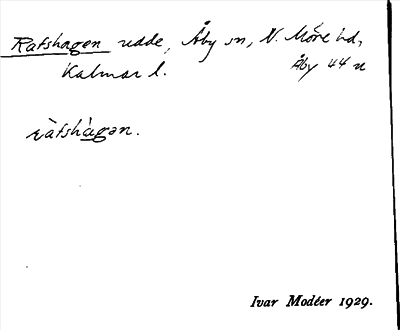 Rafshagen udde, Åby sn, N. Möre hd,
Kalmar l. Åby 44 u
ràfshà̱gən.
Ivar Modéer 1929.